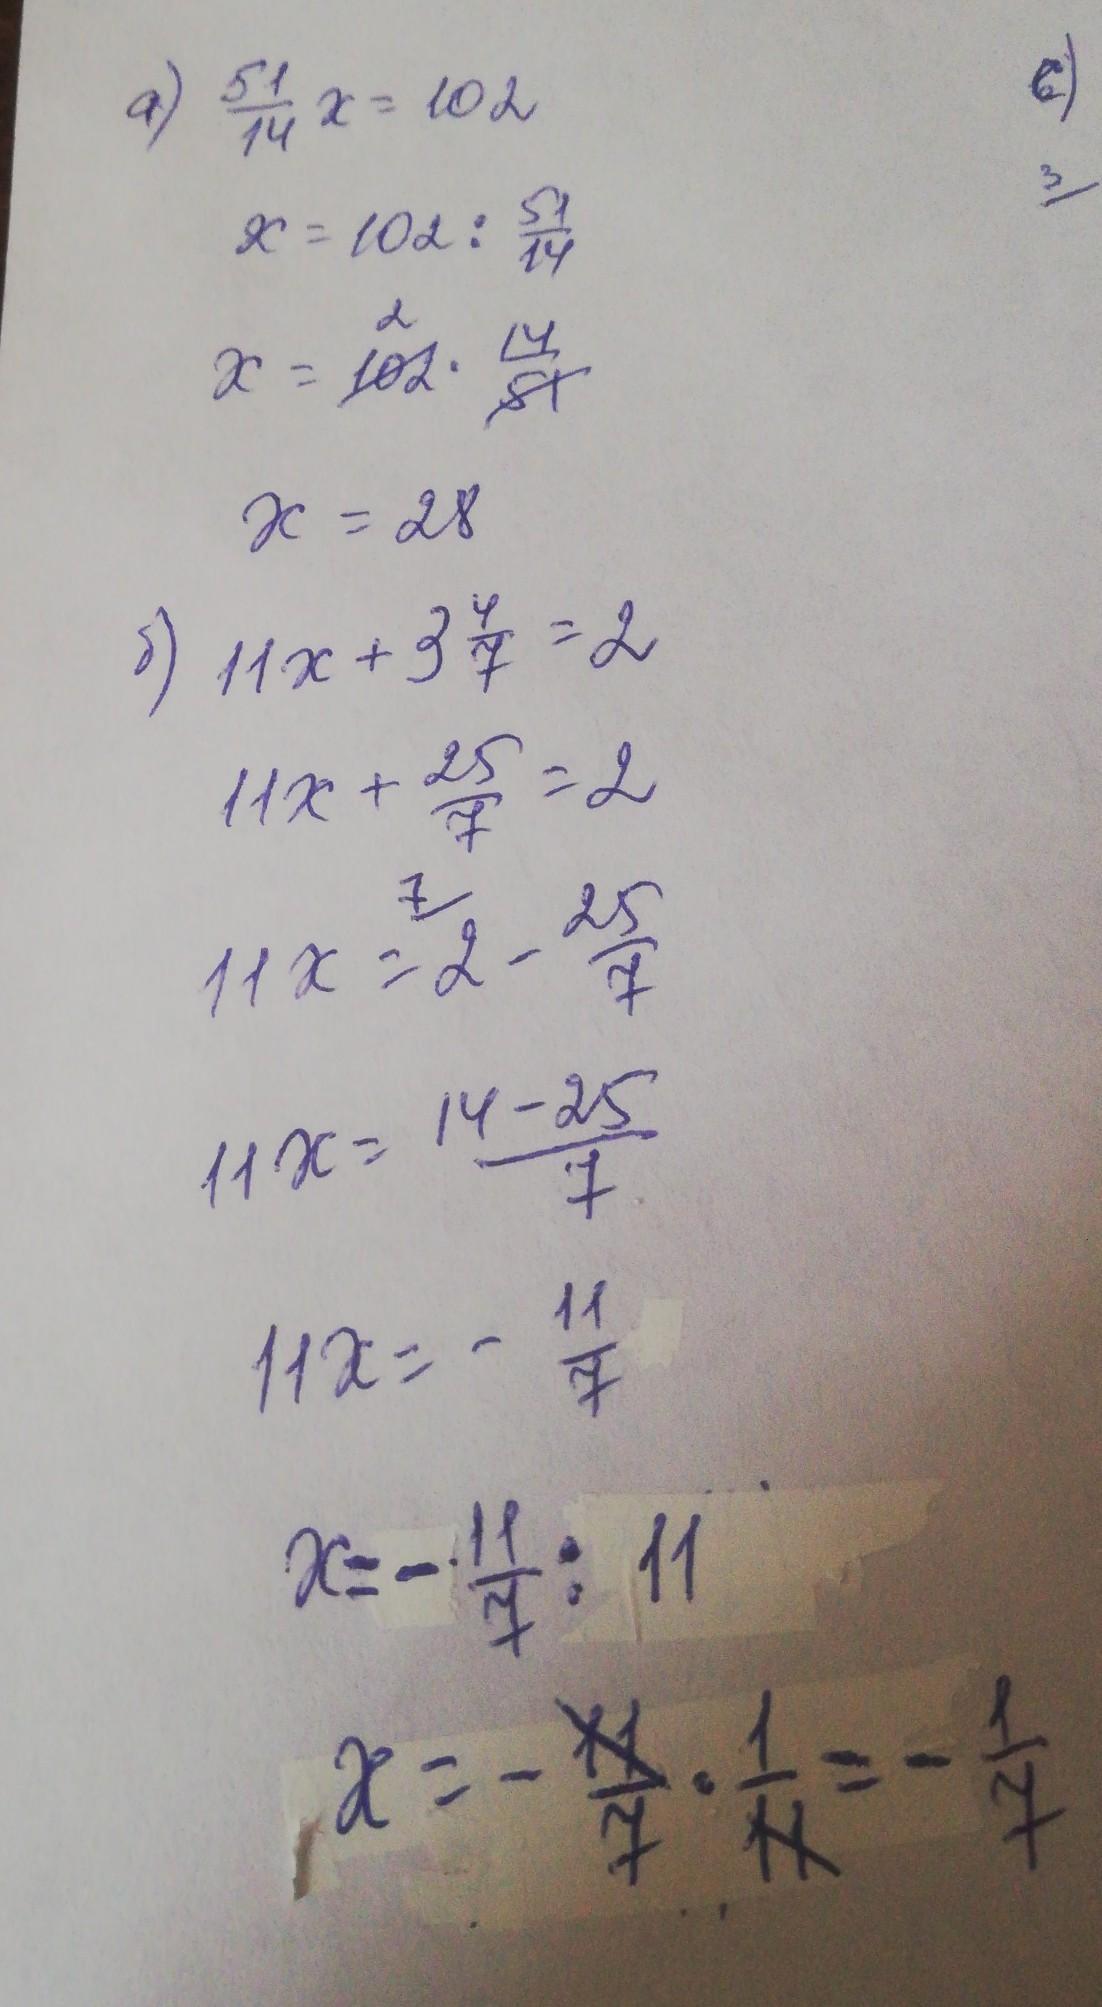 а) 51/14 x = 102
x = 102 : 51/14
2
x = 102 · 14/51
x = 28
б) 11x + 3 4/7 = 2
11x + 25/7 = 2
7/
11x = 2 - 25/7
11x = 14 - 25/7
11x = - 11/7
x = - 11/7 : 11
x = - 11/7 · 1/11 = - 1/7
3/